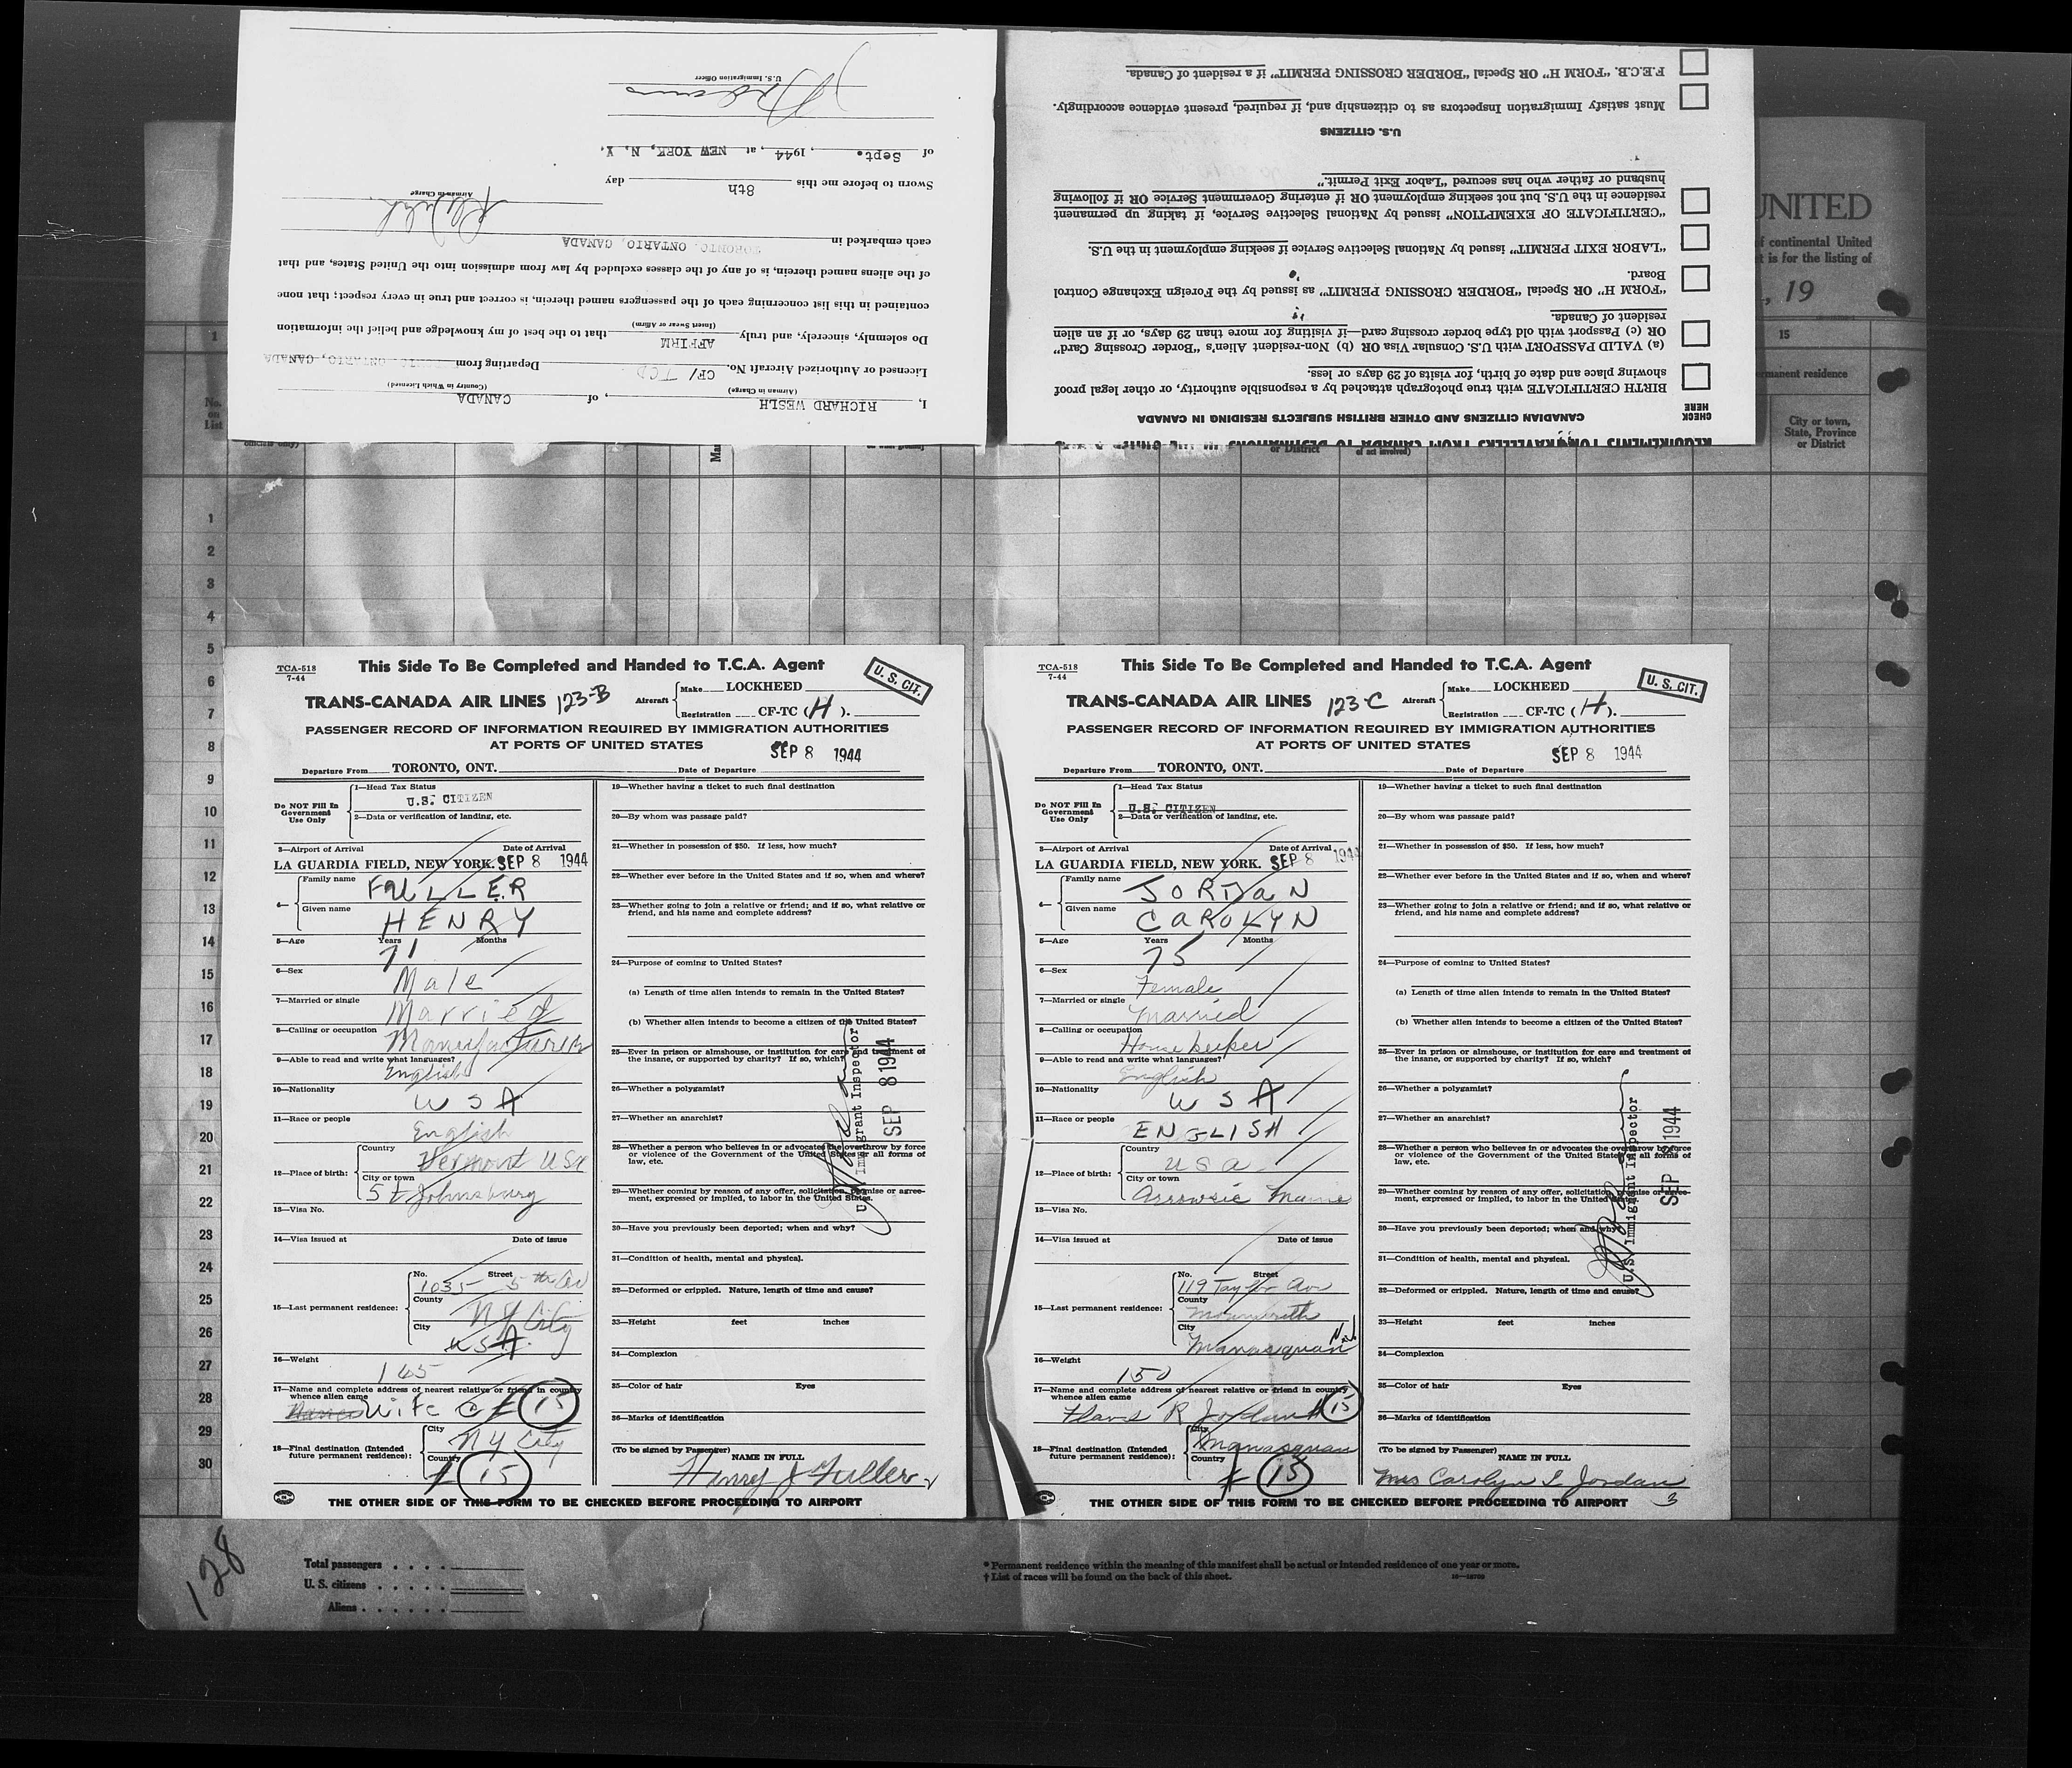 U.S. Immigration Officer
of Sept., 1944, at NEW YORK, N. Y.
Sworn to before me this 8th day
Airman in Charge
each embarked in TORONTO, ONTARIO, CANADA
of the aliens named therein, is of any of the classes excluded by law from admission into the United States, and that
contained in this list concerning each of the passengers named therein, is correct and true in every respect; that none
Do solemnly, sincerely, and truly AFFIRM that to the best of my knowledge and belief the information
(Insert Swear or Affirm)
Licensed or Authorized Aircraft No. CF/ TCD Departing from TORONTO ONTARIO, CANADA
(Airman in Charge) (Country in Which Licensed)
I, RICHARD WESLH, of CANADA
F.E.C.B. "FORM H" OR Special "BORDER CROSSING PERMIT" if a resident of Canada.
Must satisfy Immigration Inspectors as to citizenship and, if required, present evidence accordingly.
U.S. CITIZENS
husband or father who has secured "Labor Exit Permit."
residence in the U.S. but not seeking employment OR if entering Government Service OR if following
"CERTIFICATE OF EXEMPTION" issued by National Selective Service, if taking up permanent
"LABOR EXIT PERMIT" issued by National Selective Service if seeking employment in the U.S.
Board.
"FORM H" OR Special "BORDER CROSSING PERMIT" as issued by the Foreign Exchange Control
resident of Canada.
OR (c) Passport with old type border crossing card—if visiting for more than 29 days, or if an alien
(a) VALID PASSPORT with U.S. Consular Visa OR (b) Non-resident Alien's "Border Crossing Card"
showing place and date of birth, for visits of 29 days or less.
BIRTH CERTIFICATE with true photograph attached by a responsible authority, or other legal proof
CHECK HERE
CANADIAN CITIZENS AND OTHER BRITISH SUBJECTS RESIDING IN CANADA
REQUIREMENTS FOR TRAVELLERS FROM CANADA TO DESTINATIONS IN THE UNITED
UNITED
of continental United
t is for the listing of
, 19
15
rmanent residence
City or town,
State, Province
or District
1
No.
on
List
officials only)
or District
of act involved)
1
2
3
4
5
6
7
8
9
10
11
12
13
14
15
16
17
18
19
20
21
22
23
24
25
26
27
28
29
30
TCA-518
7-44
This Side To Be Completed and Handed to T.C.A. Agent
U. S. CIT.
TRANS-CANADA AIR LINES 123-B
Aircraft Make LOCKHEED
Registration CF-TC (H).
PASSENGER RECORD OF INFORMATION REQUIRED BY IMMIGRATION AUTHORITIES
AT PORTS OF UNITED STATES
SEP 8 1944
Departure From TORONTO, ONT. Date of Departure
Do NOT Fill In
Government
Use Only
1—Head Tax Status
U.S. CITIZEN
2—Data or verification of landing, etc.
3—Airport of Arrival Date of Arrival
LA GUARDIA FIELD, NEW YORK. SEP 8 1944
4— Family name FULLER
Given name HENRY
5—Age Years Months
71
6—Sex Male
7—Married or single Married
8—Calling or occupation Manufacturer
9—Able to read and write what languages?
English
10—Nationality U S A
11—Race or people English
12—Place of birth: Country Vermont USA
City or town St Johnsburg
13—Visa No.
14—Visa issued at Date of issue
15—Last permanent residence: No. Street
1035 5th Av
County N Y City
City USA.
16—Weight 165
17—Name and complete address of nearest relative or friend in country
whence alien came
Wife @ # 15
18—Final destination (Intended
future permanent residence):
City N Y City
Country # 15
19—Whether having a ticket to such final destination
20—By whom was passage paid?
21—Whether in possession of $50. If less, how much?
22—Whether ever before in the United States and if so, when and where?
23—Whether going to join a relative or friend; and if so, what relative or
friend, and his name and complete address?
24—Purpose of coming to United States?
(a) Length of time alien intends to remain in the United States?
(b) Whether alien intends to become a citizen of the United States?
25—Ever in prison or almshouse, or institution for care and treatment of
the insane, or supported by charity? If so, which?
26—Whether a polygamist?
27—Whether an anarchist?
28—Whether a person who believes in or advocates the overthrow by force
or violence of the Government of the United States or all forms of
law, etc.
29—Whether coming by reason of any offer, solicitation, promise or agree-
ment, expressed or implied, to labor in the United States.
30—Have you previously been deported; when and why?
31—Condition of health, mental and physical.
32—Deformed or crippled. Nature, length of time and cause?
33—Height feet inches
34—Complexion
35—Color of hair Eyes
36—Marks of identification
(To be signed by Passenger)
NAME IN FULL
Henry J Fuller
U.S. Immigrant Inspector
SEP 8 1944
THE OTHER SIDE OF THIS FORM TO BE CHECKED BEFORE PROCEEDING TO AIRPORT
TCA-518
7-44
This Side To Be Completed and Handed to T.C.A. Agent
U. S. CIT.
TRANS-CANADA AIR LINES 123-C
Aircraft Make LOCKHEED
Registration CF-TC (H).
PASSENGER RECORD OF INFORMATION REQUIRED BY IMMIGRATION AUTHORITIES
AT PORTS OF UNITED STATES
SEP 8 1944
Departure From TORONTO, ONT. Date of Departure
Do NOT Fill In
Government
Use Only
1—Head Tax Status
U.S. CITIZEN
2—Data or verification of landing, etc.
3—Airport of Arrival Date of Arrival
LA GUARDIA FIELD, NEW YORK. SEP 8 1944
4— Family name JORDAN
Given name CAROLYN
5—Age Years Months
75
6—Sex Female
7—Married or single Married
8—Calling or occupation
Housekeeper
9—Able to read and write what languages?
English
10—Nationality U S A
11—Race or people ENGLISH
12—Place of birth: Country U S A
City or town Arrowsic Maine
13—Visa No.
14—Visa issued at Date of issue
15—Last permanent residence: No. Street
119 Taylor Ave
County Monmouth
City Manasquan N.J.
16—Weight 150
17—Name and complete address of nearest relative or friend in country
whence alien came
R Jordan # 15
18—Final destination (Intended
future permanent residence):
City Manasquan
Country # 15
19—Whether having a ticket to such final destination
20—By whom was passage paid?
21—Whether in possession of $50. If less, how much?
22—Whether ever before in the United States and if so, when and where?
23—Whether going to join a relative or friend; and if so, what relative or
friend, and his name and complete address?
24—Purpose of coming to United States?
(a) Length of time alien intends to remain in the United States?
(b) Whether alien intends to become a citizen of the United States?
25—Ever in prison or almshouse, or institution for care and treatment of
the insane, or supported by charity? If so, which?
26—Whether a polygamist?
27—Whether an anarchist?
28—Whether a person who believes in or advocates the overthrow by force
or violence of the Government of the United States or all forms of
law, etc.
29—Whether coming by reason of any offer, solicitation, promise or agree-
ment, expressed or implied, to labor in the United States.
30—Have you previously been deported; when and why?
31—Condition of health, mental and physical.
32—Deformed or crippled. Nature, length of time and cause?
33—Height feet inches
34—Complexion
35—Color of hair Eyes
36—Marks of identification
(To be signed by Passenger)
NAME IN FULL
Mrs Carolyn L. Jordan
3
U.S. Immigrant Inspector
SEP 8 1944
THE OTHER SIDE OF THIS FORM TO BE CHECKED BEFORE PROCEEDING TO AIRPORT
128
Total passengers
U. S. citizens
Aliens
* Permanent residence within the meaning of this manifest shall be actual or intended residence of one year or more.
† List of races will be found on the back of this sheet.